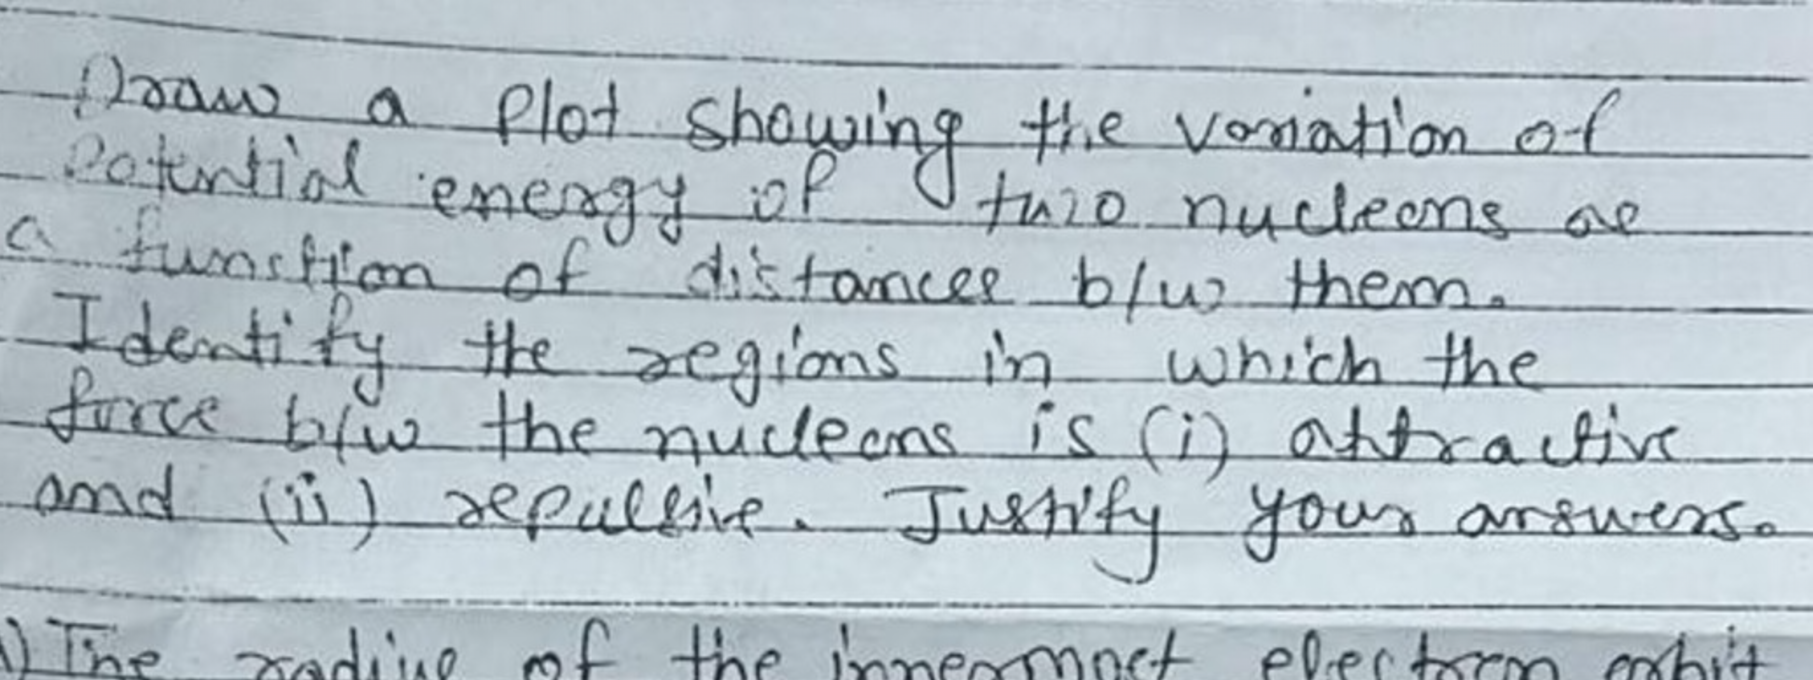 Draw a Plot showing the variation of
Potential energy of two nucleons as
a function of distances b/w them.
Identify the regions in which the
force b/w the nucleons is (i) attractive
and (ii) repulsive. Justify your answers.
The radius of the innermost electron orbit